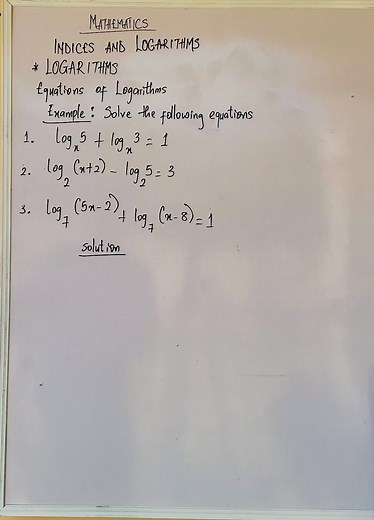 MATHEMATICS
INDICES AND LOGARITHMS
* LOGARITHMS
Equations of Logarithms
Example: Solve the following equations
1. logₓ5 + logₓ3 = 1
2. log₂(x+2) - log₂5 = 3
3. log₇(5x-2) + log₇(x-8) = 1
solution